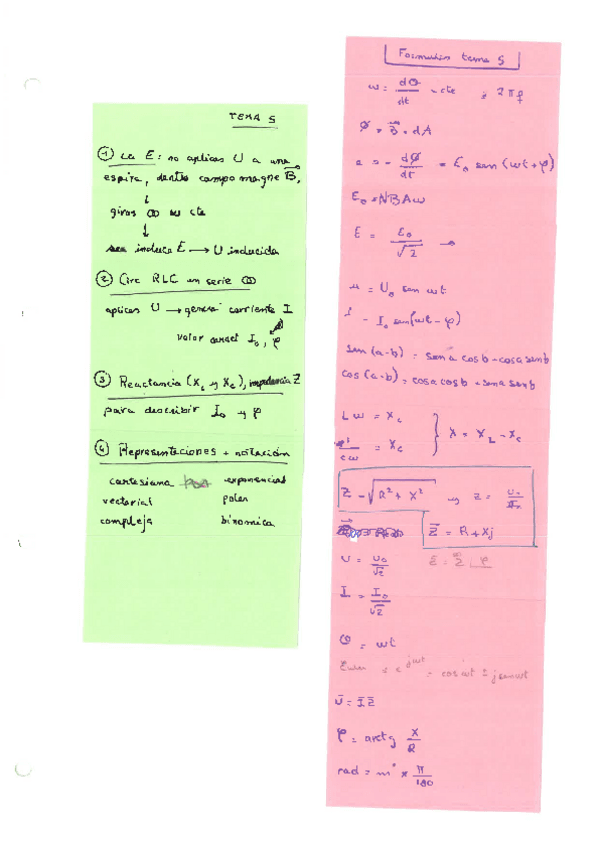 TEMA 5
① La E: no aplicas U a una
espira, dentro campo magne B⃗,
↓
giras ω cte
↓
induce E → U inducida
② Circ RLC en serie
aplicas U → genera corriente I
valor I₀, φ
③ Reactancia (X_L y X_C), impedancia Z
para describir I₀ y φ
④ Representaciones + notación
cartesiana exponencial
vectorial polar
compleja binomica
Formulas tema 5
ω = dΘ/dt = cte ; 2πf
Ø = B⃗ · dA
e = - dØ/dt = E₀ sen (ωt + φ)
E₀ = NBAω
E = E₀/√2
u = U₀ sen ωt
i = I₀ sen(ωt - φ)
sen (a-b) = sen a cos b - cos a sen b
cos (a-b) = cos a cos b + sen a sen b
Lω = X_L
1/cω = X_C } X = X_L - X_C
Z = √R² + X² y Z = U₀/I₀
Z̄ = R + Xj
U = U₀/√2 Z̄ = Z |φ
I = I₀/√2
Θ = ωt
e^jωt = cos ωt ± j sen ωt
Ū = Ī Z̄
φ = arctg X/R
rad = m° × π/180